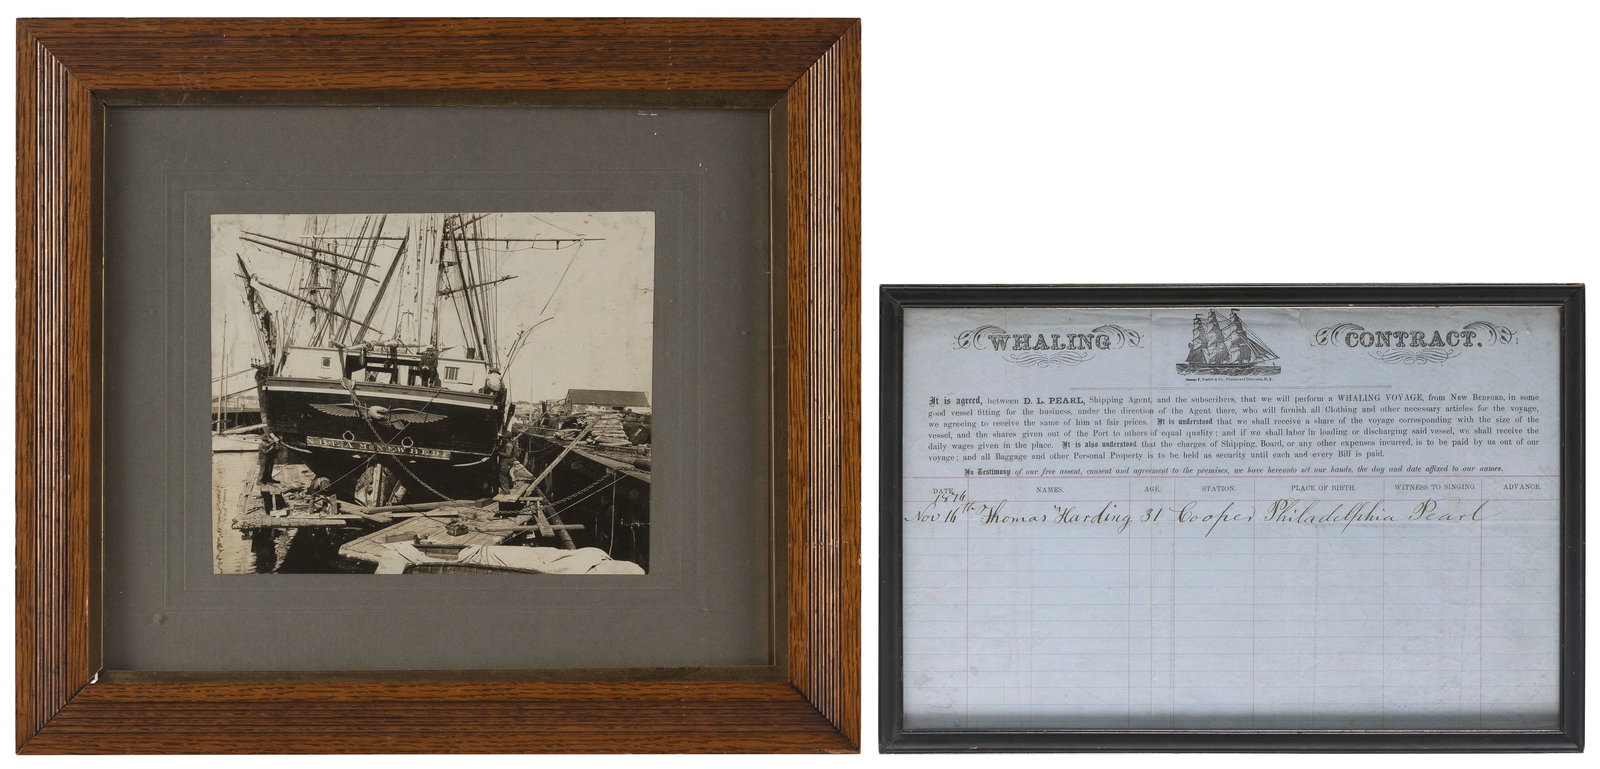 NEW BEDF
WHALING CONTRACT.
It is agreed, between D. L. PEARL, Shipping Agent, and the subscribers, that we will perform a WHALING VOYAGE, from NEW BEDFORD, in some
good vessel fitting for the business, under the direction of the Agent there, who will furnish all Clothing and other necessary articles for the voyage,
we agreeing to receive the same of him at fair prices. It is understood that we shall receive a share of the voyage corresponding with the size of the
vessel, and the shares given out of the Port to others of equal quality; and if we shall labor in loading or discharging said vessel, we shall receive the
daily wages given in the place. It is also understood that the charges of Shipping, Board, or any other expenses incurred, is to be paid by us out of our
voyage; and all Baggage and other Personal Property is to be held as security until each and every Bill is paid.
In Testimony of our free assent, consent and agreement to the premises, we have hereunto set our hands, the day and date affixed to our names.
DATE. NAMES. AGE. STATION. PLACE OF BIRTH. WITNESS TO SIGNING. ADVANCE.
1876
Nov 16th Thomas Harding 31 Cooper Philadelphia Pearl